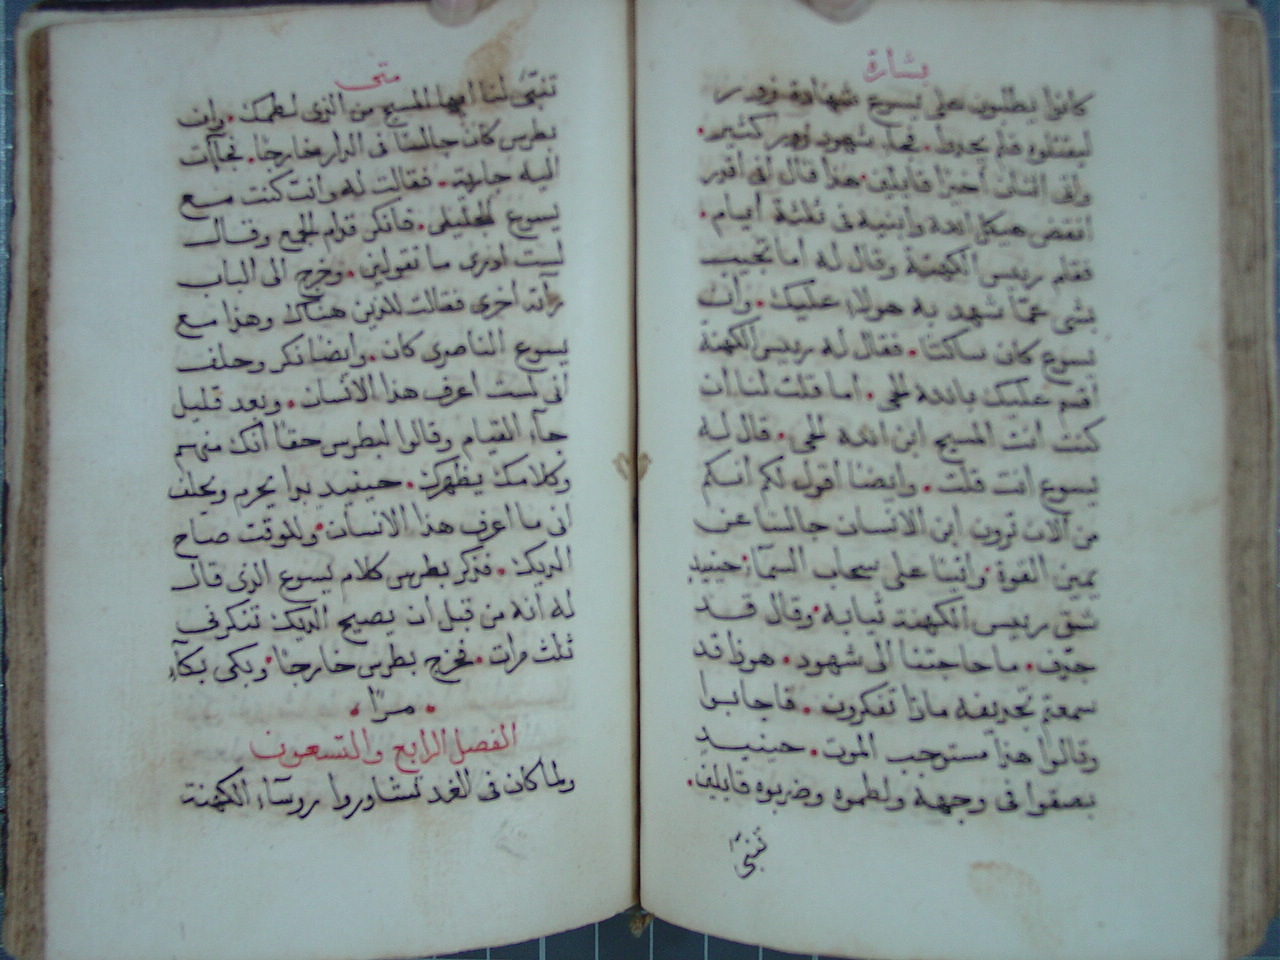 بشارة
كانوا يطلبون على يسوع شهادة زور
ليقتلوه فلم يجدوا. فجاء شهود زور كثير.
واتى اثنان اخيرًا قايلين هذا قال انى اقدر
انقض هيكل الله وابنيه فى ثلثة ايام.
فقام رييس الكهنة وقال له اما تجيب
بشى عمّا شهد به هولاء عليك. وان
يسوع كان ساكتا. فقال له رييس الكهنة
اقسم عليك بالله الحى. اما قلت لنا ان
كنت انت المسيح ابن الله الحى. قال له
يسوع انت قلت. وايضا اقول لكم انكم
من الان ترون ابن الانسان جالسا عن
يمين القوة واتيا على سحاب السمآء. حينيذ
شق رييس الكهنة ثيابه. وقال قد
جدّف. ما حاجتنا الى شهود. هوذا قد
سمعتم تجديفه ماذا تفكرون. فاجابوا
وقالوا هذا مستوجب الموت. حينيذ
بصقوا فى وجهه ولطموه وضربوه قايلين.
تنبى
متى
تنبّى لنا ايها المسيح من الذى لطمك. وان
بطرس كان جالسًا فى الدار خارجًا. فجآات
اليه جارية. فقالت له وانت كنت مع
يسوع الجليلى. فانكر قدام الجميع وقال
لست ادرى ما تقولين. وخرج الى الباب
راته اخرى فقالت للذين هناك وهذا مع
يسوع الناصرى كان. وايضا نكر وحلف
انى لست اعرف هذا الانسان. وبعد قليل
جآء القيام وقالوا لبطرس حقا انك منهم
وكلامك يظهرك. حينيذ بدا يحرم ويحلف
انى ما اعرف هذا الانسان. وللوقت صاح
الديك. فذكر بطرس كلام يسوع الذى قال
له انه من قبل ان يصيح الديك تنكرنى
ثلث مرات. فخرج بطرس خارجًا. وبكى بكآء
. مرّا .
الفصل الرابع والتسعون
ولما كان فى الغد تشاوروا روسآء الكهنة